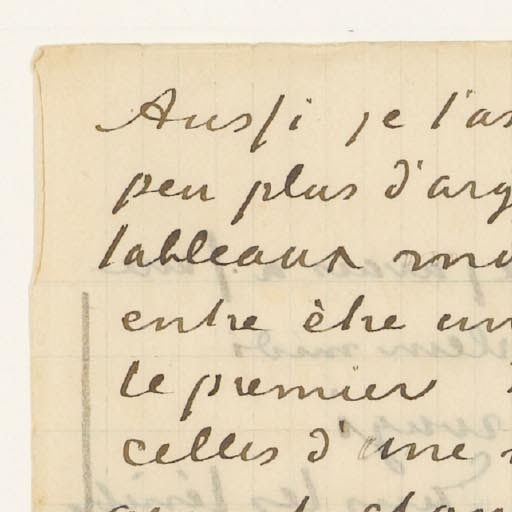 Aussi je l'as
peu plus d'arg
tableaux
entre être un
le premier
celles d'une